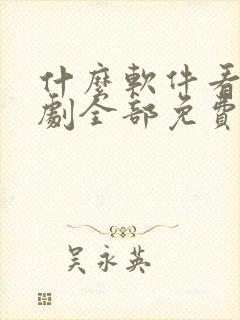 什麼軟件看
劇全部免費
吴永英